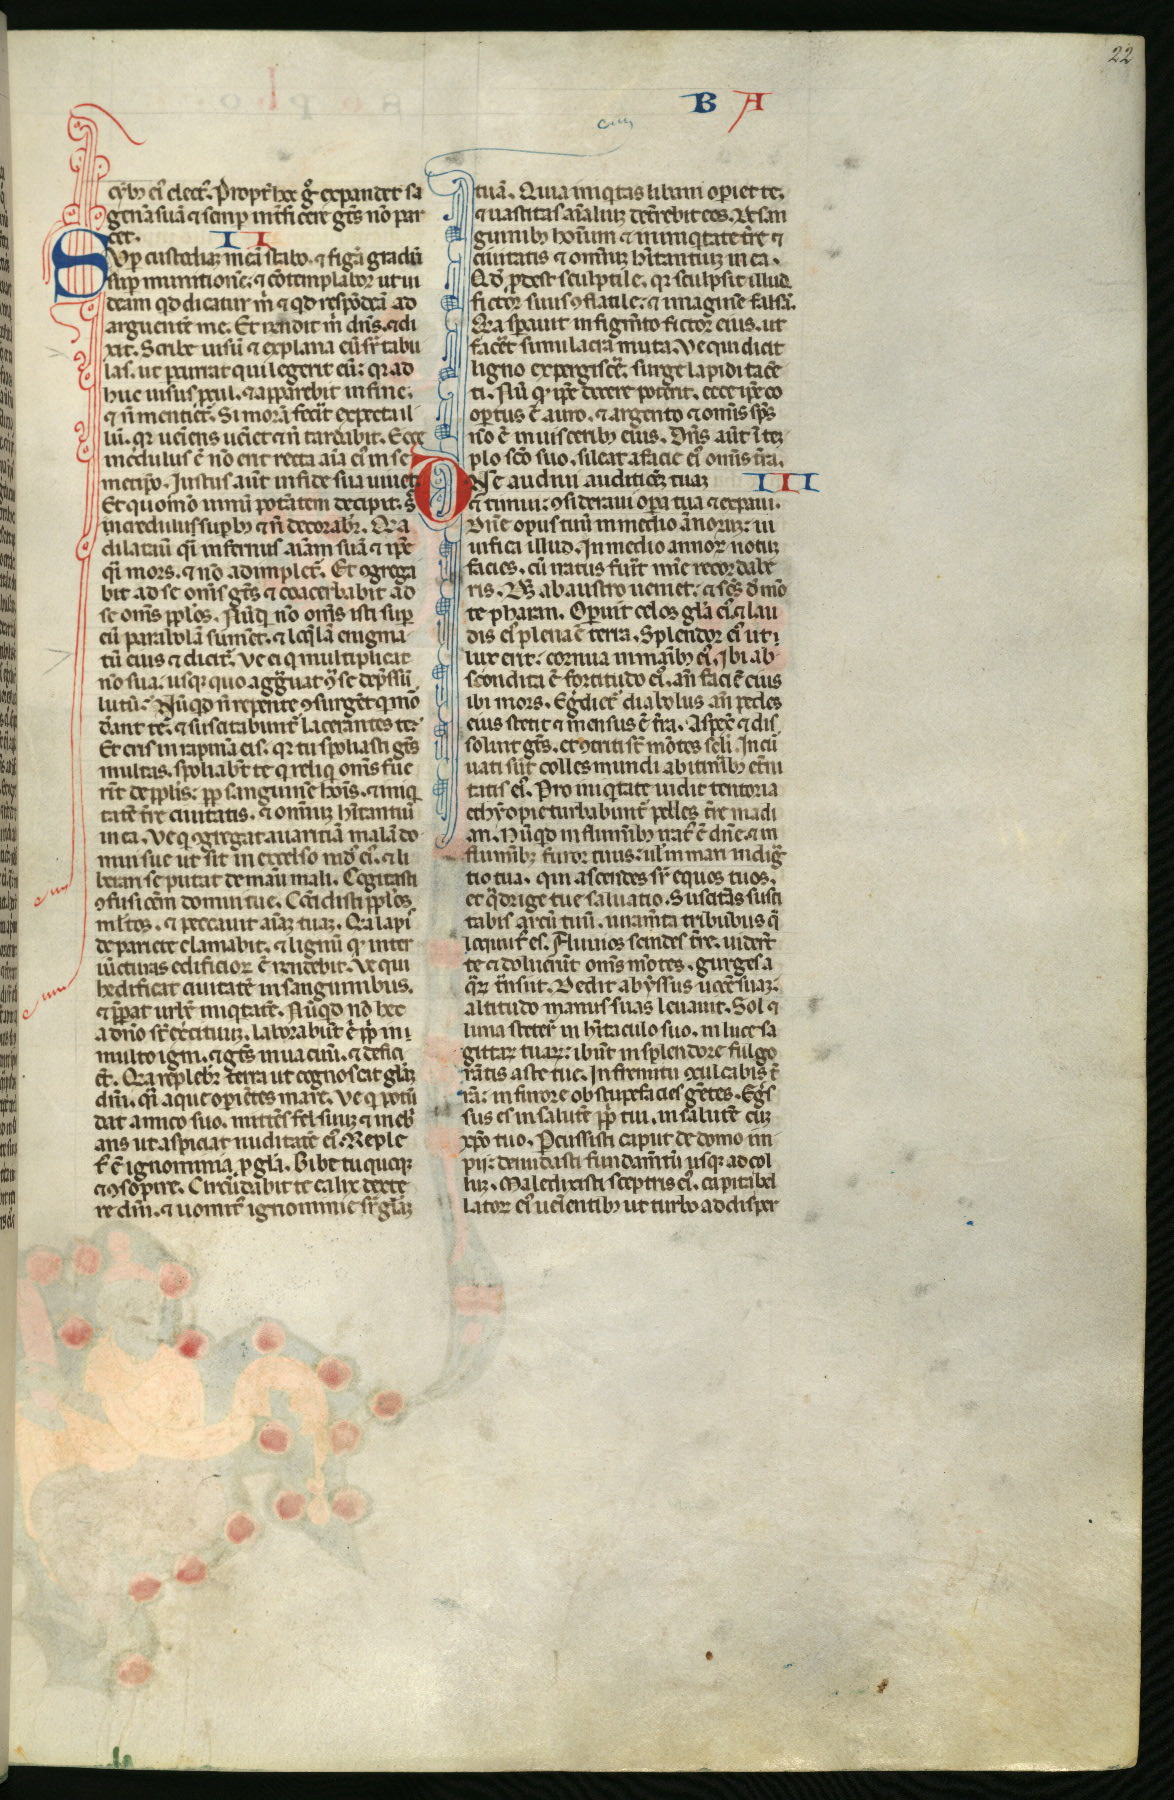 22
B A
cibꝰ eiꝰ elect᷒. Propt̄ hec gͦ expandet sa
genā suā ⁊ semp̄ int̄ficere gtēs nō par
cet. II
Sup̄ custodiaꝫ meā stabo. ⁊ figā gradū
sup̄ munitionē: ⁊ cōtemplabor ut ui
deam qd̄ dicatur m̄ ⁊ qd̄ respōdeā ad
arguentē me. Et rn̄dit m̄ dn̄s. ⁊ di
xit. Scribe uisū ⁊ explana eū sr̄ tabu
las. ut ꝑcurrat qui legerit eū: qꝛ ad
huc uisus ꝓcul. ⁊ apparebit in finē.
⁊ n̄ mentiet᷒. Si morā fec̄it expecta il
lū. qꝛ ueniens ueniet ⁊ n̄ tardabit. Ecce
incredulus ē nō erit recta aīa eiꝰ in se
metip̄o. Iustus aūt in fide sua uiuet
Et quomō uinū potātem decipit. sic
incredulus suꝑbꝰ ⁊ n̄ decorabit᷒. Qui
dilatauit q̄i infernus aīam suā ⁊ ip̄e
q̄i mors. ⁊ nō adimplet᷒. Et ꝯgrega
bit ad se om̄s gtēs ⁊ coacerbabit ad
se om̄s pplōs. Nūqd nō om̄s isti sup̄
eū parabolā sument. ⁊ loq̄lā enigma
tū eius ⁊ dicet᷒. Ve ei q multiplicat
nō sua. usq̄ quo aggͣuat ꝯtͣ se dēssū
lutū: Nūqd n̄ repente ꝯsurgēt q mō
dant te. ⁊ suscitabunt᷒ lacerantes te:
Et eris in rapinā eis. qꝛ tu spoliasti gtēs
multas. spoliabt̄ te q reliq̄ om̄s fue
rit de pplīs: pp̄ sanguinē hois. ⁊ iniq̄
tatē tr̄e ciuitatis. ⁊ omniuꝫ hītantiū
in ea. Ve q ꝯgregat auaritiā malā do
mui sue ut sit in excelso nidꝰ eiꝰ. ⁊ li
berari se putat de manu mali. Cogitasti
ꝯfusiōem domui tue. Cōcidisti pplōs
ml̄tos. ⁊ peccauit aīaꝫ tuaꝫ. Quia lapis
de pariete clamabit. ⁊ lignū qꝛ inter
iūcturas edificioꝝ ē rn̄debit. Ve qui
hedificat ciuitatē in sanguinibus.
⁊ p̄parat urbē iniqtate. Nūqd nō hec
a dn̄o st̄ exercituuꝫ. laborabūt ē pp̄li in
multo igni. ⁊ gtēs in uacuū. ⁊ defici
et. Quia replebit᷒ terra ut cognoscat gl̄aꝫ
dn̄i. q̄i aque opientes mare. Ve q potū
dat amico suo. mittēs fel suuꝫ ⁊ inebri
ans ut aspiciat nuditatē eiꝰ. Reple
tꝰ ē ignominia ꝓ gl̄a. Bibe tu quoqꝫ
⁊ ꝯsopire. Circūdabit te calix dexte
re dn̄i. ⁊ uomitꝰ ignominie sr̄ gl̄aꝫ
tuā. Quia iniqtas libani opiet te.
⁊ uastitas aīaliuꝫ detrebit eos. De san
guinibꝰ hoīum ⁊ ininiqtate tr̄e ⁊
ciuitatis ⁊ omniuꝫ hītantiuꝫ in ea.
Qd̄ ꝓdest sculptile. qꝛ sculpsit illud
fictor suus ꝯflatile: ⁊ imaginē falsā.
Quia spauit in figmēto fictor eius. ut
faceret simulacra muta. Ve qui dicit
ligno expergiscere. surge lapidi tacē
ti. Nūqd ip̄e docere poterit. ecce ip̄e co
optus ē auro. ⁊ argento ⁊ omīs sp̄s
nō ē in uisceribꝰ eius. Dn̄s aūt ī tē
plo sc̄o suo. sileat a facie eiꝰ omīs tr̄a.
Dn̄e audiui auditioneꝫ tuaꝫ III
⁊ timui: ꝯsideraui opa tua ⁊ expaui.
Dn̄e opus tuū in medio annoruꝫ: ui
uifica illud. In medio annoꝝ notuꝫ
facies. cū iratus fuerit mīe recordabe
ris. Ds̄ ab austro ueniet: ⁊ sc̄s de mō
te pharan. Opuit celos gl̄a eiꝰ. ⁊ lau
dis eiꝰ plena ē terra. Splendor eiꝰ ut
lux erit: cornua in manibꝰ eiꝰ. Ibi ab
scondita ē fortitudo eiꝰ. an̄ faciē eius
ibi mors. Egdiet᷒ diabolus an̄ pedes
eius stetit ⁊ mensus ē tr̄a. Aspexit ⁊ dis
soluit gtēs. et ꝯtriti st̄ mōtes scl̄i. Incur
uati sūt colles mundi ab itinibꝰ etni
tatis eiꝰ. Pro iniqtate uidit tentoria
ethyopie turbabunt᷒ pelles tr̄e madi
an. Nūqd in fluminibꝰ iratꝰ ē dn̄e. ⁊ in
fluminibꝫ furor tuus: ul̄ in mari indig
tio tua. qui ascendes sr̄ equos tuos.
et qͣdrige tue saluatio. Suscitās susci
tabis arcū tuū. iuramēta tribubus q̄
locutꝰ es. Fluuios scindes tr̄e. uiderūt
te ⁊ doluerūt om̄s mōtes. gurges a
quaꝝ tn̄siit. Dedit abyssus uocē suaꝫ:
altitudo manus suas leuauit. Sol ⁊
luna steterūt in hītaculo suo. in luce sa
gittaꝝ tuaꝝ: ibūt in splendore fulgo
rantis aste tue. In fremitu ꝯculcabis t̄
ram: in furore obstupefacies gētes. Egs
sus es in salutē pp̄li tui. in salutē cuꝫ
xp̄o tuo. Pcussisti caput de domo im
pij: denudasti fundamtū usqꝫ ad col
luꝫ. Maledixisti sceptris eiꝰ. capiti bel
latoꝝ eiꝰ uenientibꝰ ut turbo ad disper